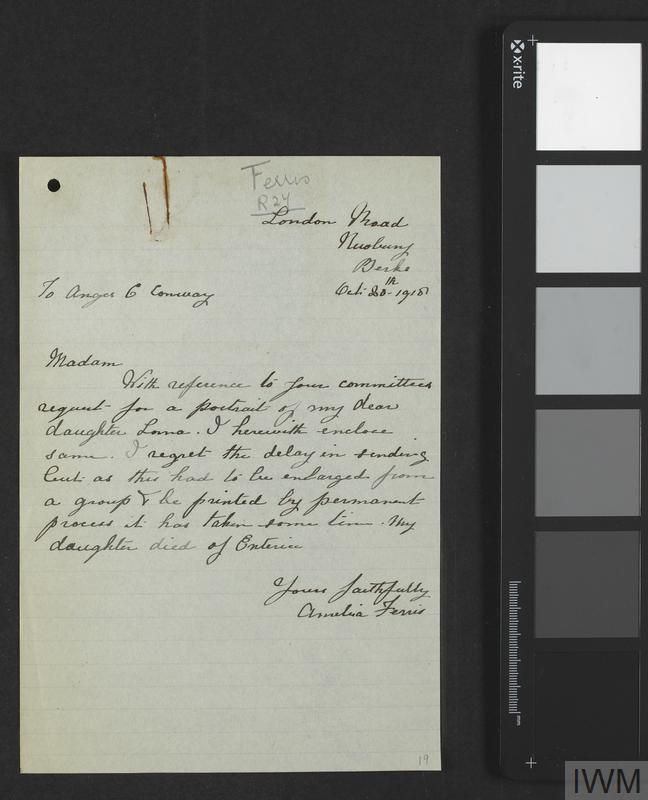 Ferris
R24
London Road
Newbury
Berks
Oct: 20th 1918
To Agnes C Conway
Madam
With reference to your committees
request for a portrait of my dear
daughter Lorna. I herewith enclose
same. I regret the delay in sending
but as this had to be enlarged from
a group & be printed by permanent
process it has taken some time. My
daughter died of Enteric
Yours faithfully
Amelia Ferris
19
x-rite
mm
IWM